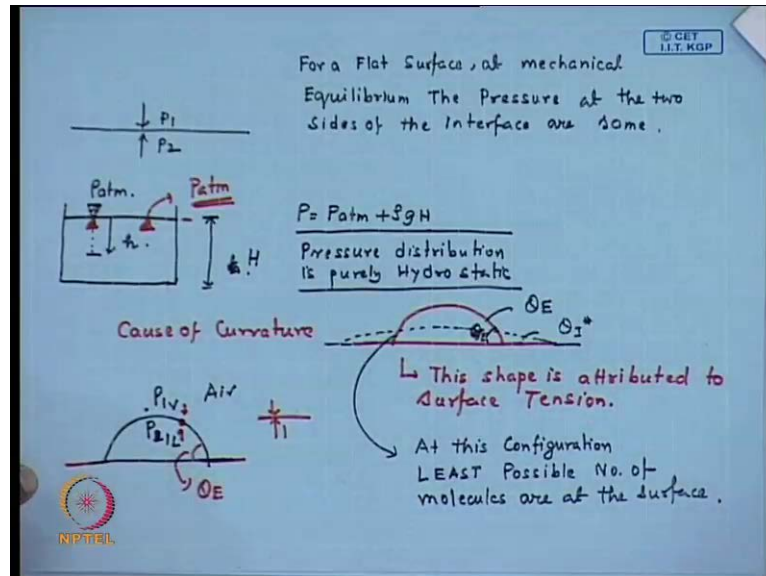 © CET
I.I.T. KGP
For a Flat Surface, at mechanical
Equilibrium The Pressure at the two
Sides of the Interface are same.
P1
P2
Patm.
Patm
h.
H
P = Patm + ρgH
Pressure distribution
is purely Hydrostatic
Cause of Curvature
θE
θI*
↳ This shape is attributed to
Surface Tension.
P1V
Air
P2L
θE
At this Configuration
LEAST Possible No. of
molecules are at the surface.
NPTEL